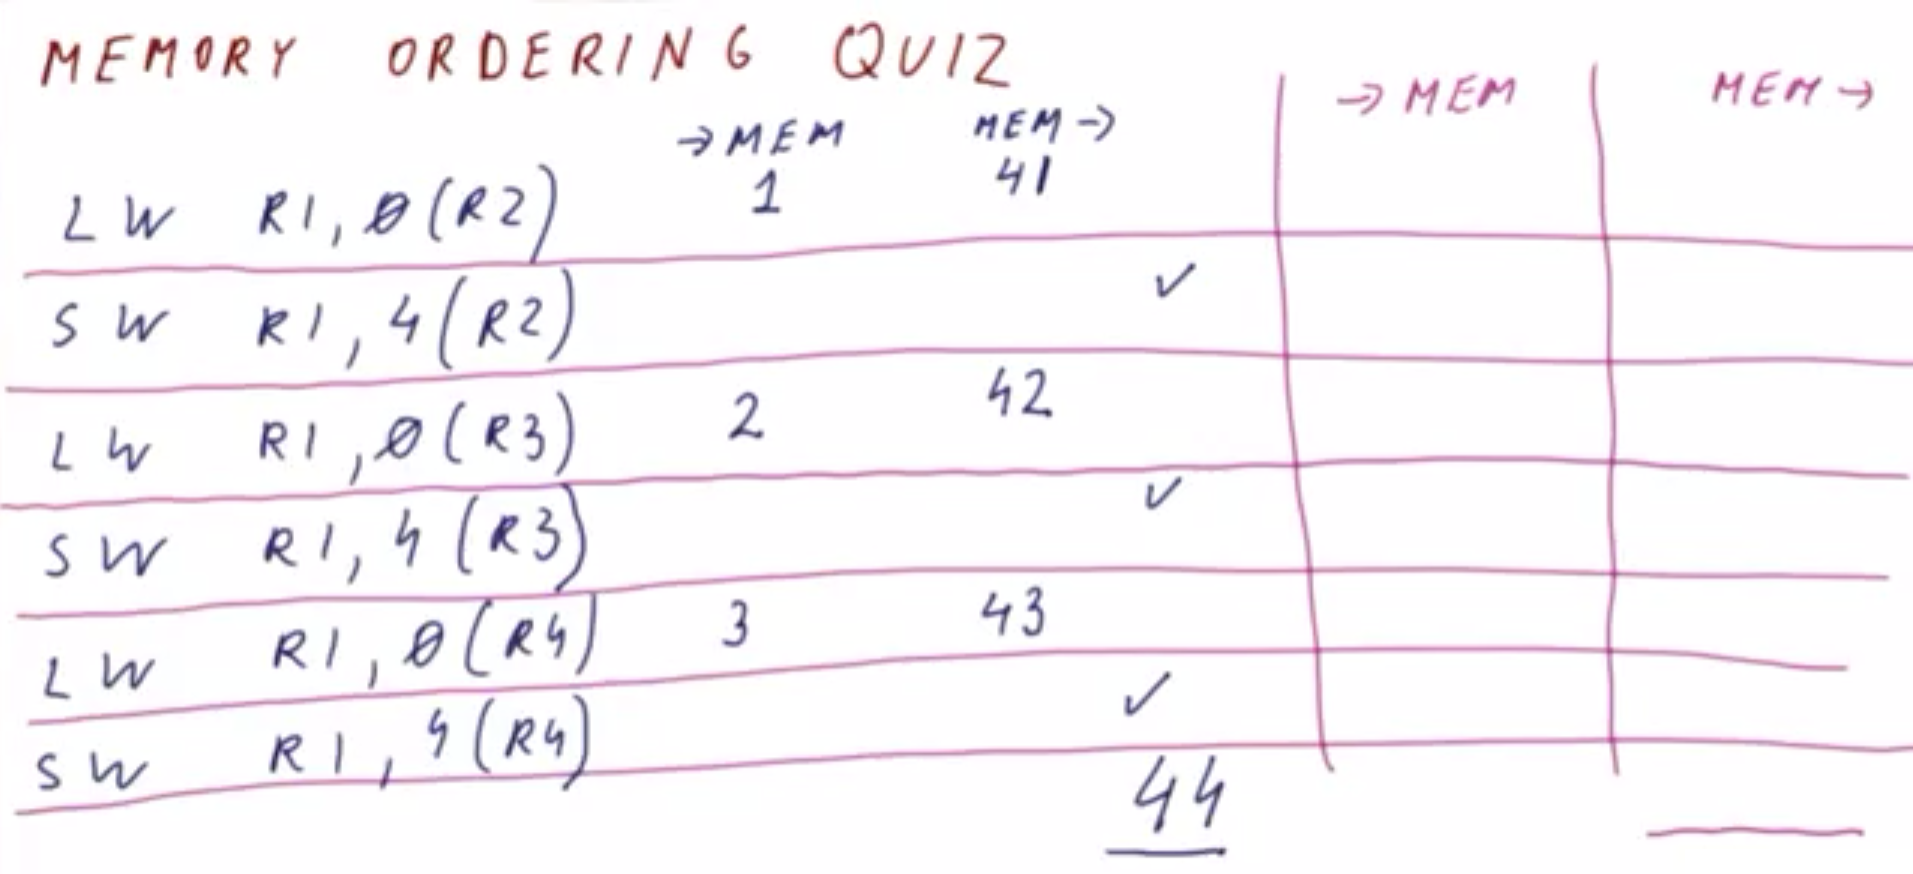 MEMORY ORDERING QUIZ
→MEM MEM→ →MEM MEM→
LW R1, 0(R2) 1 41
SW R1, 4(R2) ✓
LW R1, 0(R3) 2 42
SW R1, 4(R3) ✓
LW R1, 0(R4) 3 43
SW R1, 4(R4) ✓
44